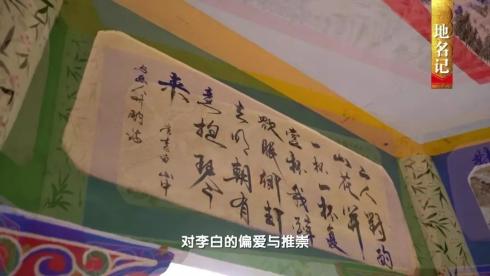 地名记
人對酌
山花開
一杯一杯復
一杯我醉
欲眠卿且
去明朝有
意抱琴
来
对李白的偏爱与推崇